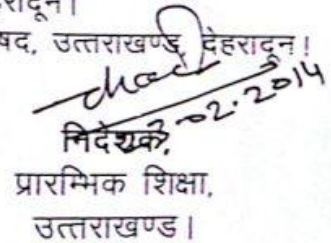 हरादून।
षद, उत्तराखण्ड, देहरादून!
02.2014
निदेशक,
प्रारम्भिक शिक्षा,
उत्तराखण्ड।